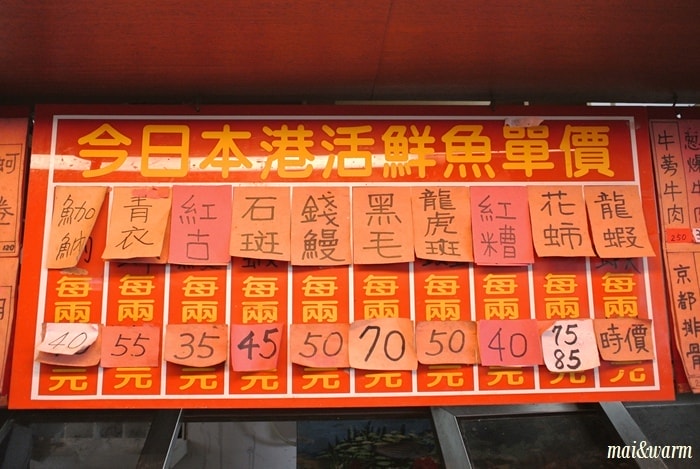 今日本港活鮮魚單價
魶 青衣 紅古 石斑 錢鰻 黑毛 龍虎斑 紅糟 花蟳 龍蝦
每兩 每兩 每兩 每兩 每兩 每兩 每兩 每兩 每兩 每兩
40 55 35 45 50 70 50 40 75 85 時價
元 元 元 元 元 元 元 元 元 元
120
蔥燒
牛蒡牛肉
250
京都排骨
mai&warm